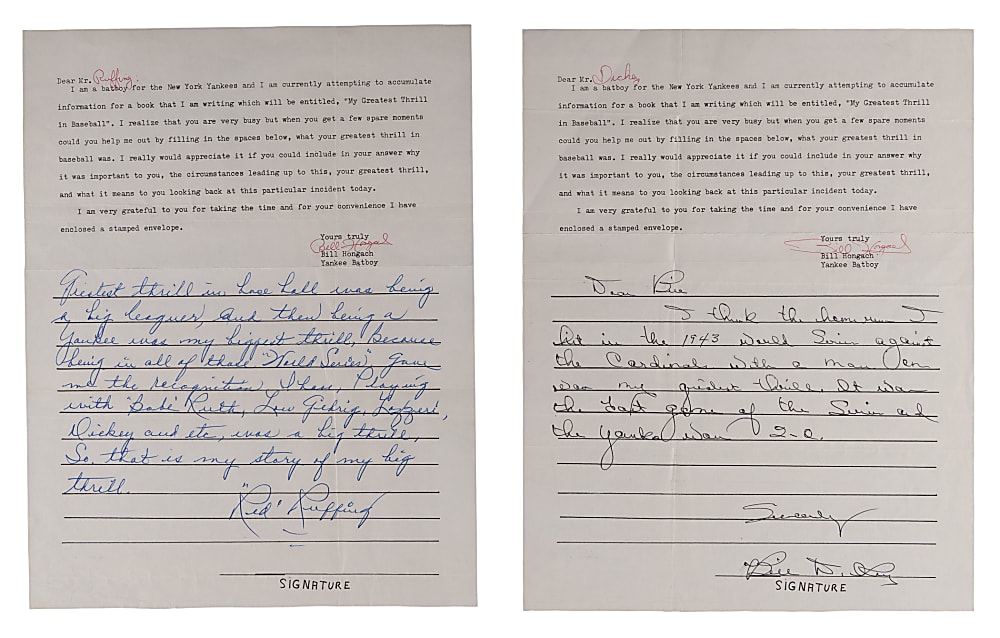 Dear Mr. Ruffing:
I am a batboy for the New York Yankees and I am currently attempting to accumulate
information for a book that I am writing which will be entitled, "My Greatest Thrill
in Baseball". I realize that you are very busy but when you get a few spare moments
could you help me out by filling in the spaces below, what your greatest thrill in
baseball was. I really would appreciate it if you could include in your answer why
it was important to you, the circumstances leading up to this, your greatest thrill,
and what it means to you looking back at this particular incident today.
I am very grateful to you for taking the time and for your convenience I have
enclosed a stamped envelope.
Yours truly
Bill Hongach
Bill Hongach
Yankee Batboy
Gretest thrill in base ball was being
a big leaguer, and then being a
Yankee was my biggest thrill, because
being in all of those "World Series", gave
me the recognition I have, Playing
with "Babe" Ruth, Lou Gehrig, Lazzeri,
Dickey and etc, was a big thrill,
So that is my story of my big
thrill.
"Red" Ruffing
SIGNATURE
Dear Mr. Dickey
I am a batboy for the New York Yankees and I am currently attempting to accumulate
information for a book that I am writing which will be entitled, "My Greatest Thrill
in Baseball". I realize that you are very busy but when you get a few spare moments
could you help me out by filling in the spaces below, what your greatest thrill in
baseball was. I really would appreciate it if you could include in your answer why
it was important to you, the circumstances leading up to this, your greatest thrill,
and what it means to you looking back at this particular incident today.
I am very grateful to you for taking the time and for your convenience I have
enclosed a stamped envelope.
Yours truly
Bill Hongach
Bill Hongach
Yankee Batboy
Dear Bill
I think the home run I
hit in the 1943 World Series against
the Cardinals with a man on
was my greatest thrill. It was
the last game of the Series and
the Yanks won 2-0.
Sincerely
Bill Dickey
SIGNATURE